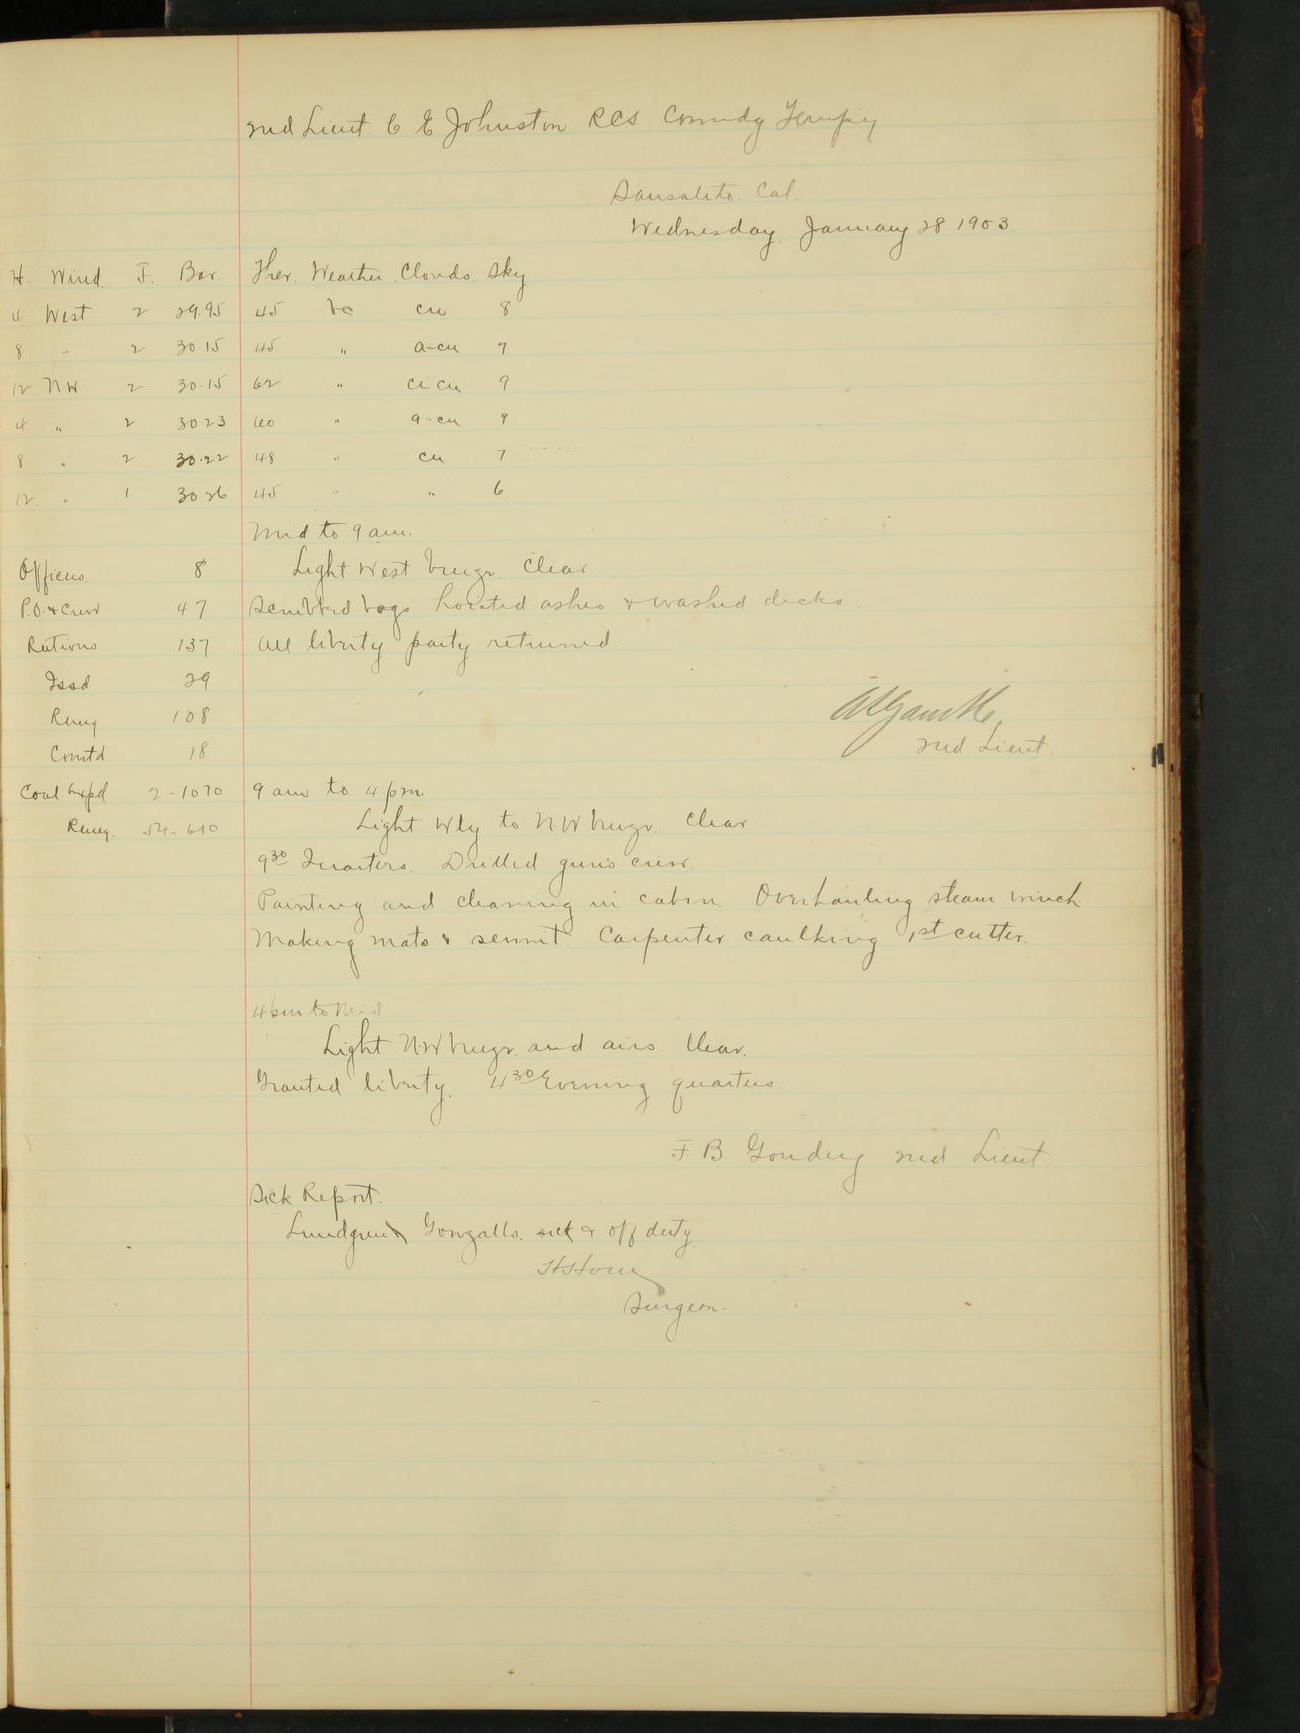 2nd Lieut. C E Johnston RCS Comndg Temp'y
Sausalito. Cal.
Wednesday January 28 1903
H. Wind. F. Bar. Ther. Weather. Clouds. Sky
4 West 2 29.95 45 bc cu 8
8 " 2 30.15 45 " a-cu 7
12 NW 2 30.15 62 " ci cu 9
4 " 2 30 23 60 " a-cu 9
8 " 2 30.22 48 " cu 7
12. " 1 30 26 45 " " 6
Mid to 9 am.
Officers 8 Light West breeze. Clear
P.O. & Crew 47 Scrubbed bags hoisted ashes & washed decks.
Rations 137 All liberty party returned.
Issd 29
Remg 108
2nd Lieut.
Comtd 18
Coal Expd 2-1070 9 am to 4 pm.
Remg. 54-610 Light Wly to NW breeze. Clear
9 30 Quarters. Drilled gun's crew.
Painting and cleaning in cabin. Overhauling steam winch.
Making mats & sennit. Carpenter caulking 1st cutter.
4 pm to Mid
Light NW breeze and airs. Clear.
Granted liberty. 4 30 Evening quarters.
F. B 2nd Lieut.
Sick Report.
Lundgren Gonzalls. sick & off duty
Surgeon.